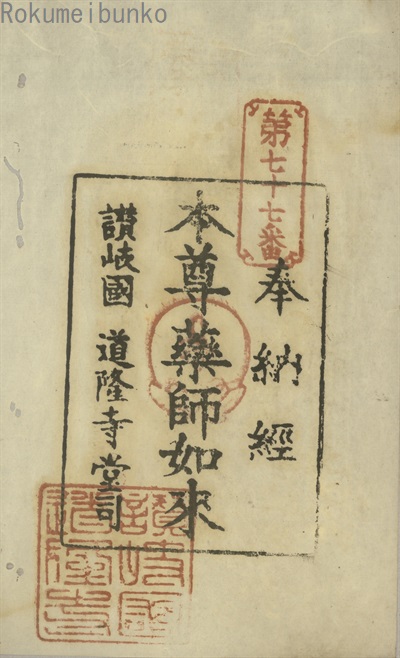 Rokumeibunko
第七十七番
奉納經
本尊藥師如來
讃岐國 道隆寺堂司
讃岐國
道隆寺